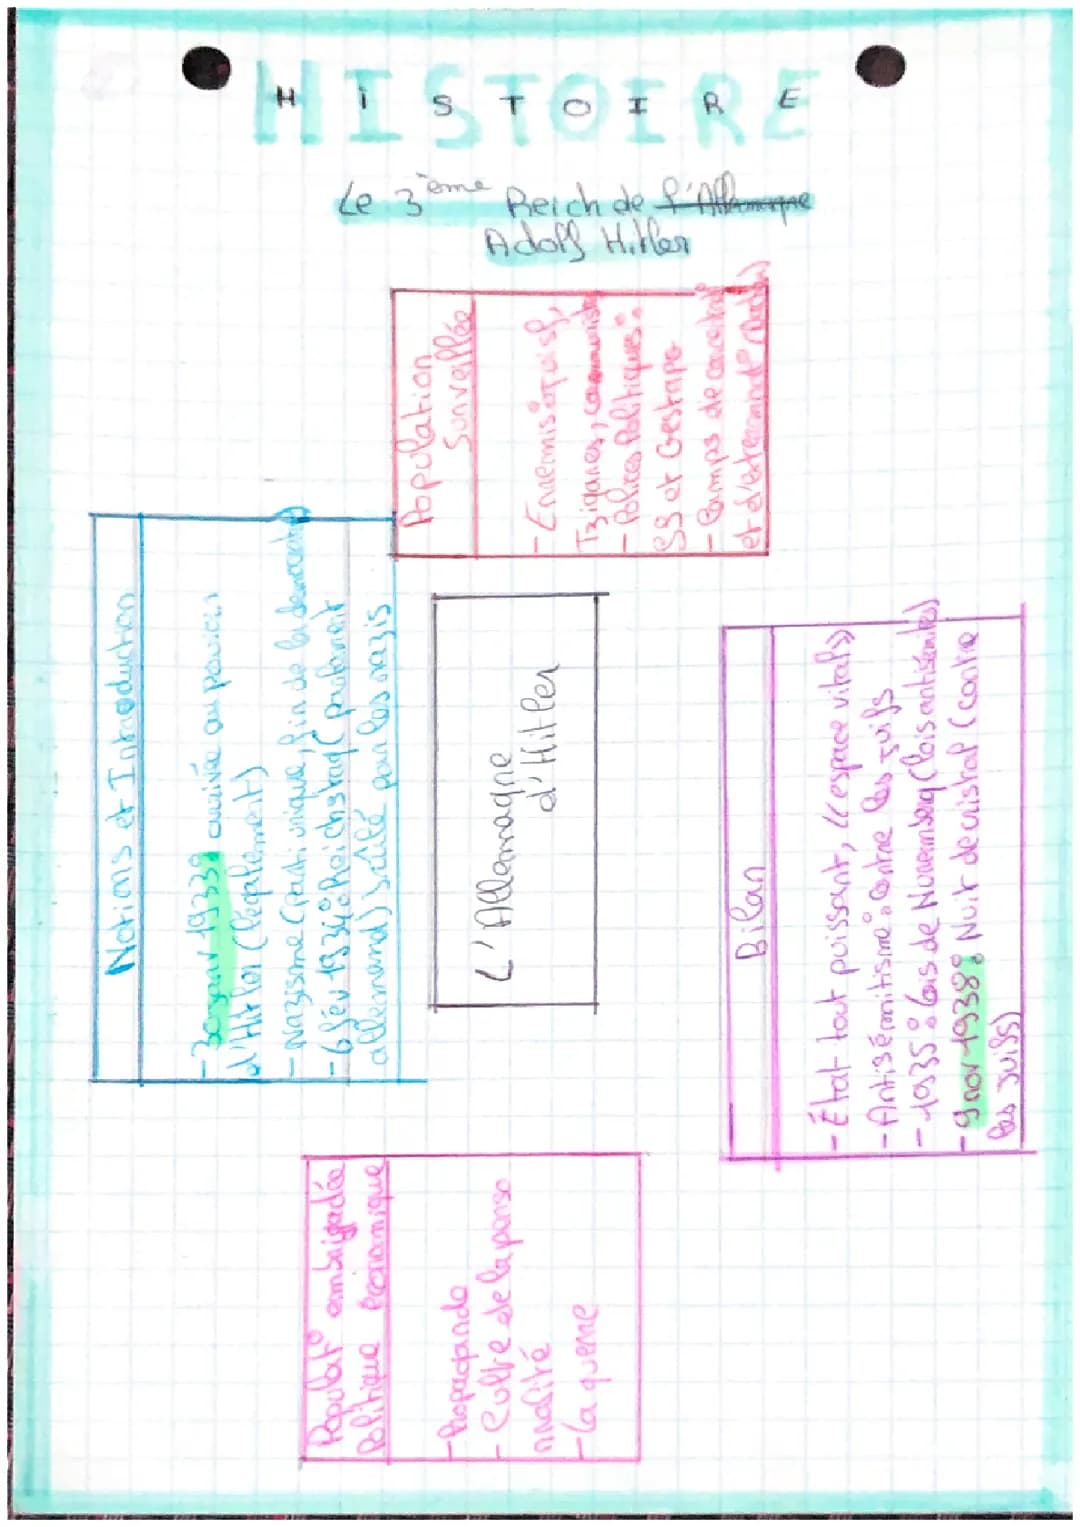 HISTOIRE
Le 3ème Reich de l'Allemagne
Adolf Hitler
Population
Surveillée
- Ennemis
Tziganes, communiste
- Polices Politiques :
SS et Gestapo
- Camps de concentrat°
et d'exterminat°
Notions et Introduction
- 30 janv 1933 : arrivée au pouvoir
d'Hitler (légalement)
- Nazisme (parti unique, fin de la démocratie)
- 6 fév 1934 : Reichstag (parlement
allemand) brûlé par les nazis
L'Allemagne
d'Hitler
Bilan
- État tout puissant, (« espace vital »)
- Antisémitisme : contre les juifs
- 1935 : lois de Nuremberg (lois antisémites)
- 9 nov 1938 : Nuit de cristal (contre
les juifs)
Populat° embrigadée
Politique économique
- Propagande
- Culte de la perso
nnalité
- La guerre